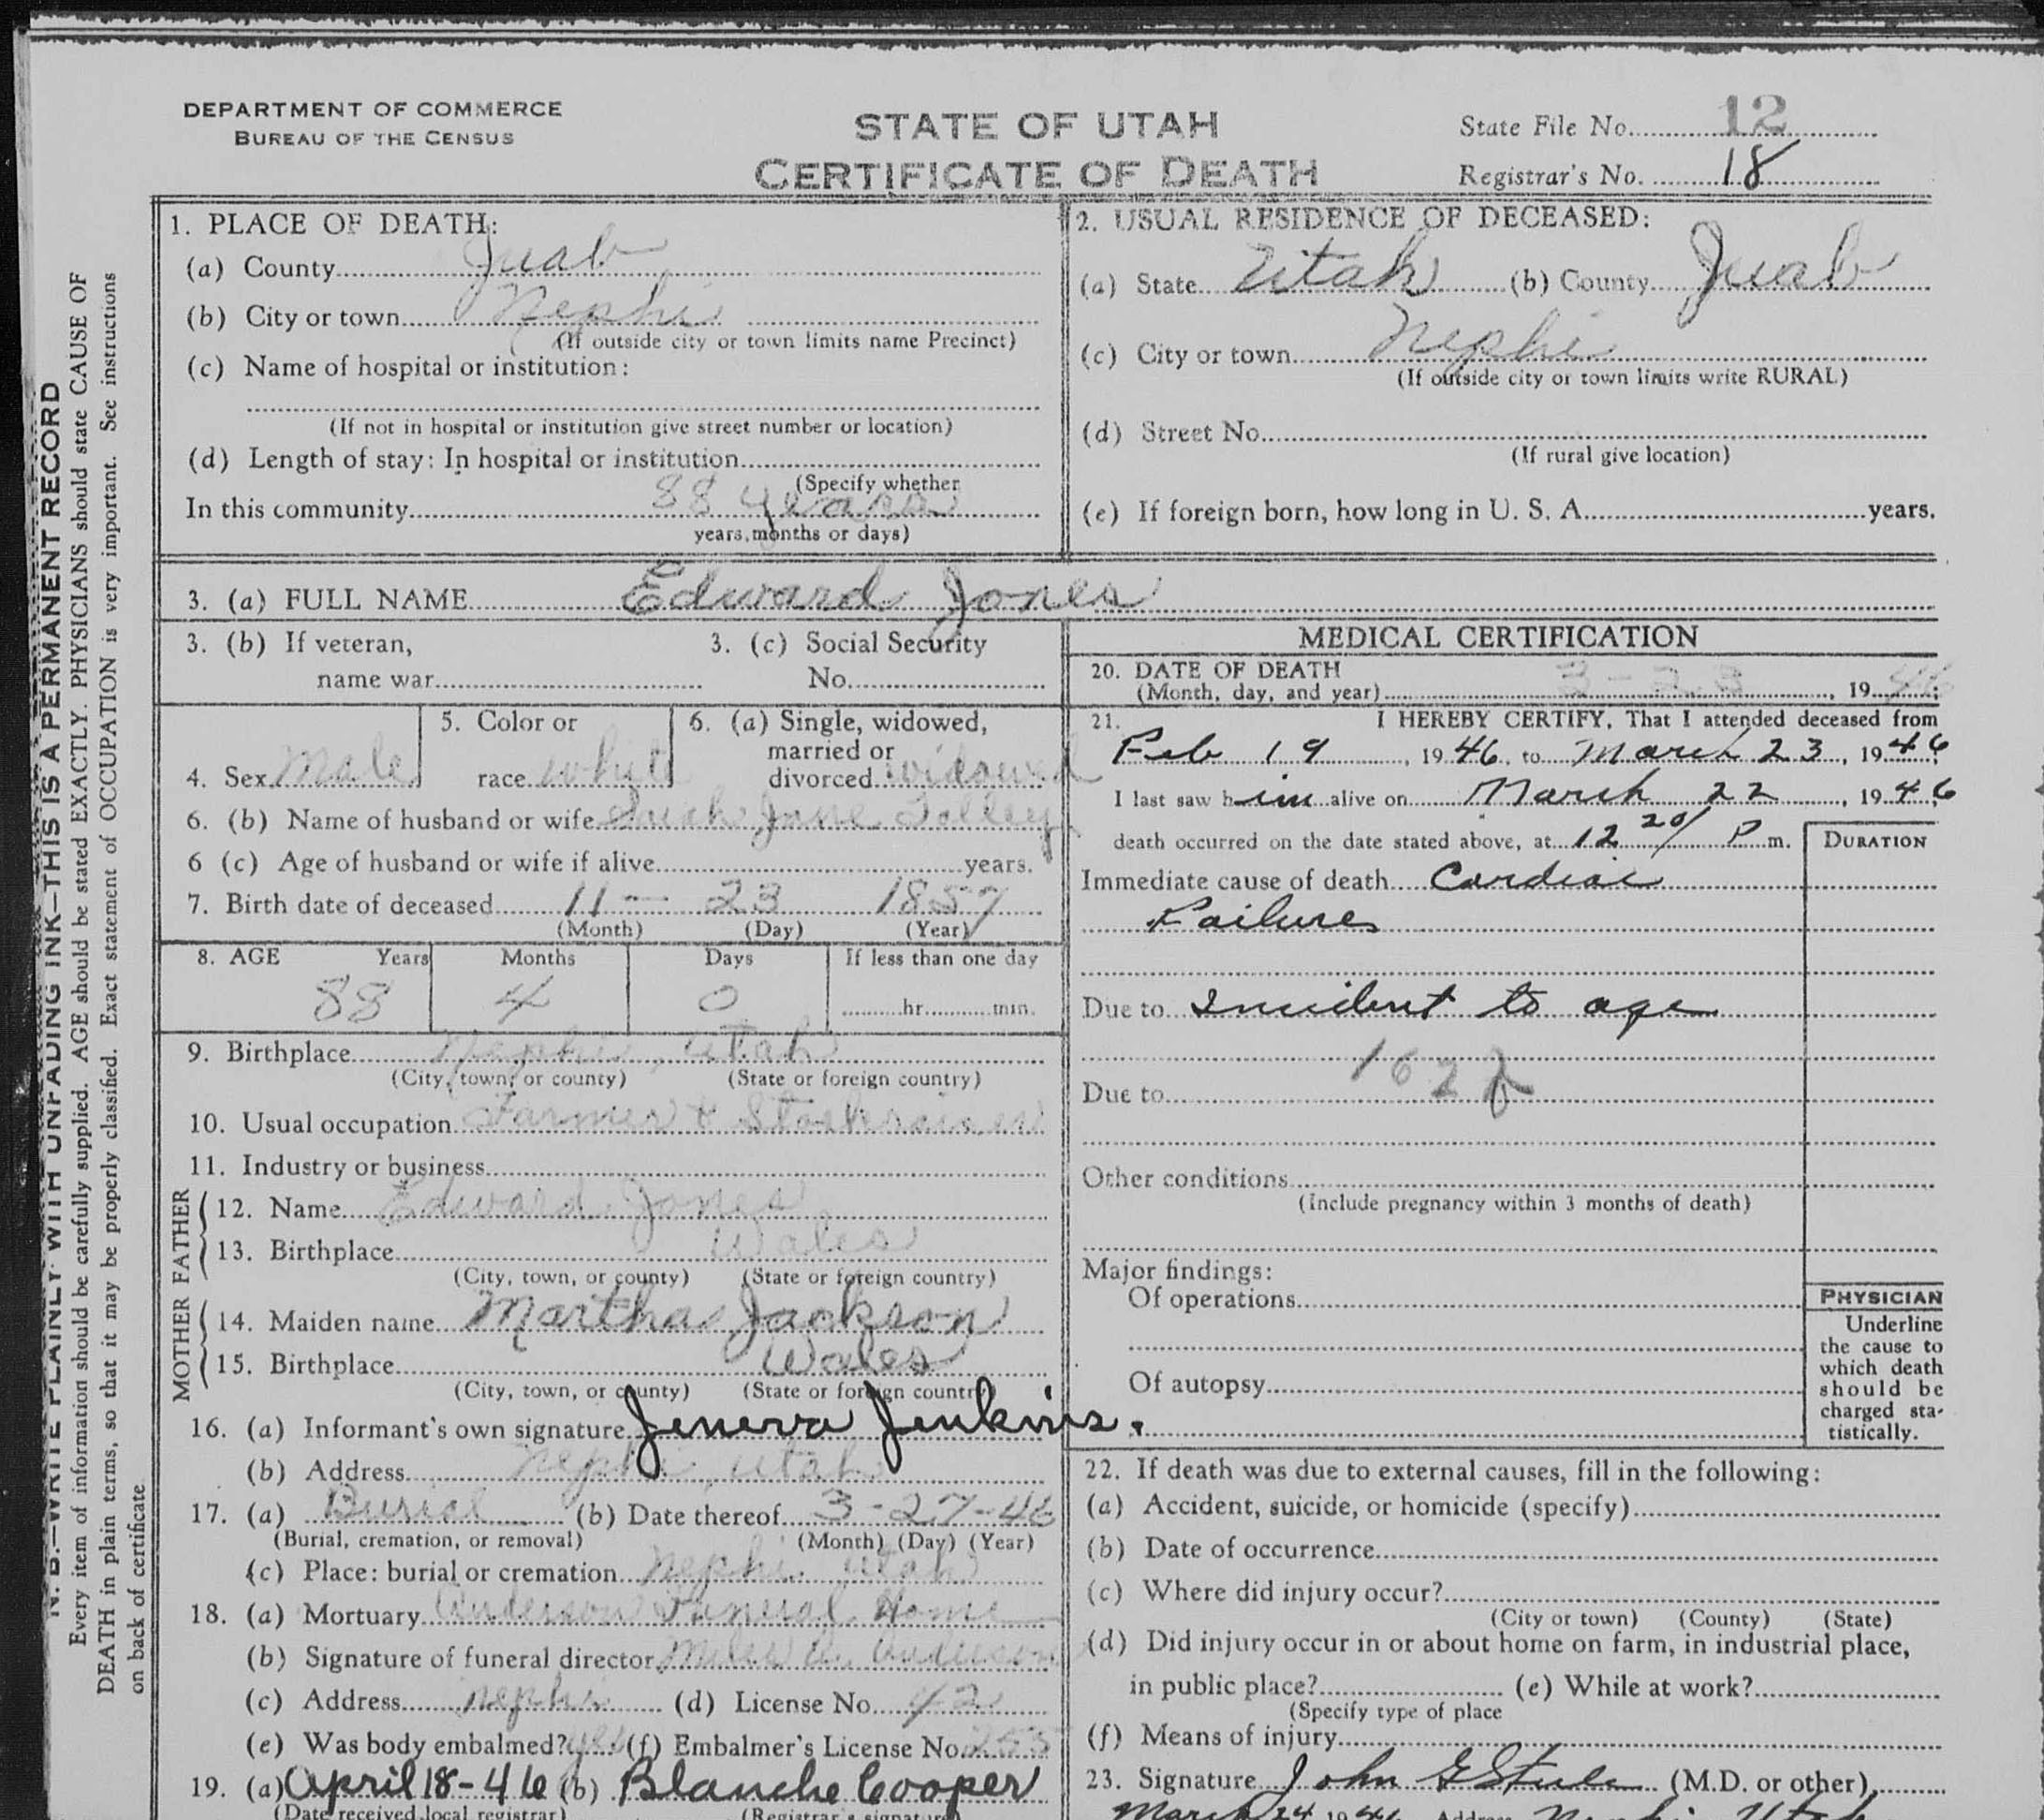 DEPARTMENT OF COMMERCE
BUREAU OF THE CENSUS
STATE OF UTAH
CERTIFICATE OF DEATH
State File No. 12
Registrar's No. 18
N. B.—WRITE PLAINLY WITH UNFADING INK—THIS IS A PERMANENT RECORD
Every item of information should be carefully supplied. AGE should be stated EXACTLY. PHYSICIANS should state CAUSE OF
DEATH in plain terms, so that it may be properly classified. Exact statement of OCCUPATION is very important. See instructions
on back of certificate
1. PLACE OF DEATH:
(a) County Juab
(b) City or town Nephi
(If outside city or town limits name Precinct)
(c) Name of hospital or institution:
(If not in hospital or institution give street number or location)
(d) Length of stay: In hospital or institution
(Specify whether
In this community 88 years
years, months or days)
2. USUAL RESIDENCE OF DECEASED:
(a) State Utah (b) County Juab
(c) City or town Nephi
(If outside city or town limits write RURAL)
(d) Street No.
(If rural give location)
(e) If foreign born, how long in U. S. A. years.
3. (a) FULL NAME Edward Jones
3. (b) If veteran, 3. (c) Social Security
name war No.
4. Sex Male
5. Color or
race white
6. (a) Single, widowed,
married or
divorced widowed
6. (b) Name of husband or wife Jane Tolley
6 (c) Age of husband or wife if alive years.
7. Birth date of deceased 11 — 23 1857
(Month) (Day) (Year)
8. AGE Years Months Days If less than one day
88 4 0 hr. min.
9. Birthplace Nephi, Utah
(City, town, or county) (State or foreign country)
10. Usual occupation Farmer & Stockraiser
11. Industry or business
FATHER
12. Name Edward Jones
13. Birthplace Wales
(City, town, or county) (State or foreign country)
MOTHER
14. Maiden name Martha Jackson
15. Birthplace Wales
(City, town, or county) (State or foreign country)
16. (a) Informant's own signature Jeneva Jenkins.
(b) Address Nephi, Utah
17. (a) Burial (b) Date thereof 3-27-46
(Burial, cremation, or removal) (Month) (Day) (Year)
(c) Place: burial or cremation Nephi, Utah
18. (a) Mortuary Anderson Funeral Home
(b) Signature of funeral director Miles A. Anderson
(c) Address Nephi (d) License No. 42
(e) Was body embalmed? yes (f) Embalmer's License No. 255
19. (a) April 18-46 (b) Blanche Cooper
(Date received local registrar) (Registrar's signature)
MEDICAL CERTIFICATION
20. DATE OF DEATH
(Month, day, and year) 3-23, 1946;
21. I HEREBY CERTIFY, That I attended deceased from
Feb 19, 1946, to March 23, 1946;
I last saw him alive on March 22, 1946
death occurred on the date stated above, at 12 20/ P m.
DURATION
Immediate cause of death Cardiac
Failure
Due to Incident to age
162
Due to
Other conditions
(Include pregnancy within 3 months of death)
Major findings:
Of operations
Of autopsy
PHYSICIAN
Underline
the cause to
which death
should be
charged sta-
tistically.
22. If death was due to external causes, fill in the following:
(a) Accident, suicide, or homicide (specify)
(b) Date of occurrence
(c) Where did injury occur?
(City or town) (County) (State)
(d) Did injury occur in or about home on farm, in industrial place,
in public place? (e) While at work?
(Specify type of place
(f) Means of injury
23. Signature John G Steele (M.D. or other)
March 24 1946 Address Nephi, Utah